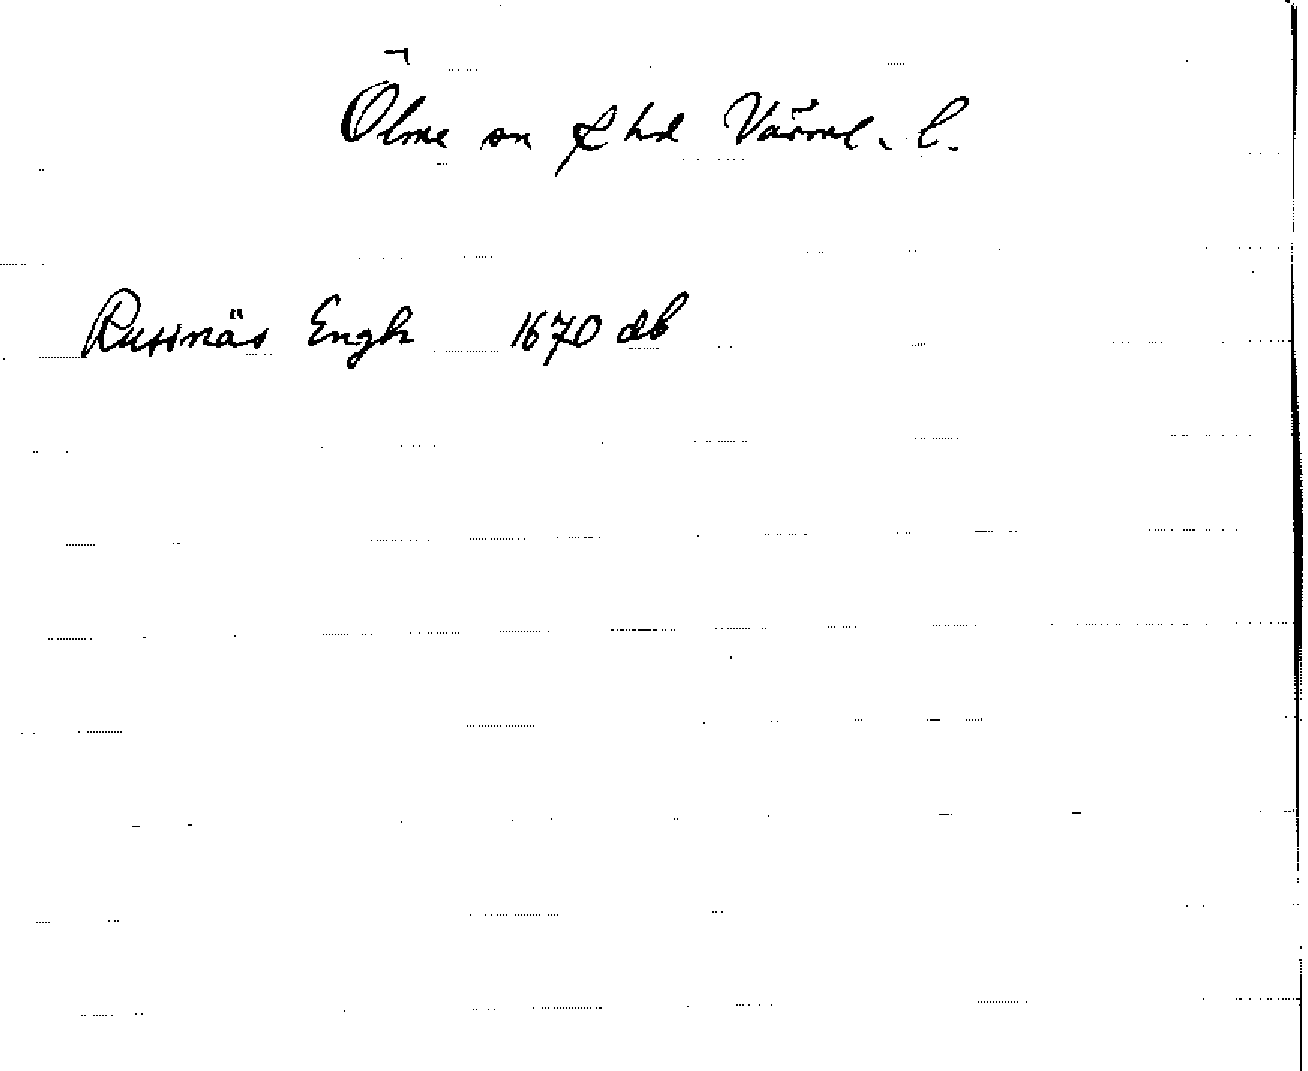 Ölme sn f hd Värml. l.
Russnäs Engh 1670 db